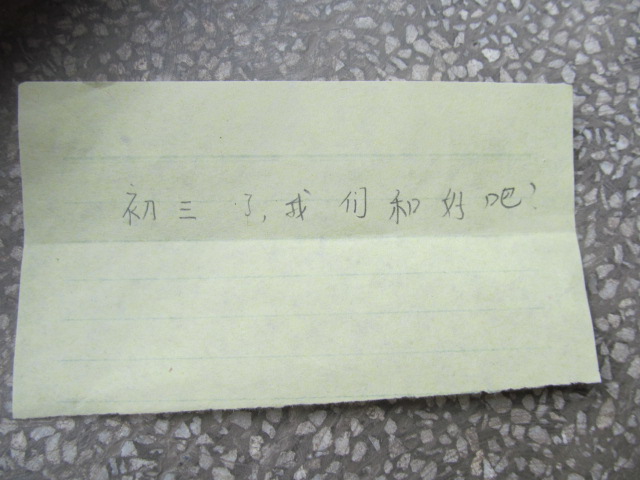 初三了,我们和好吧?